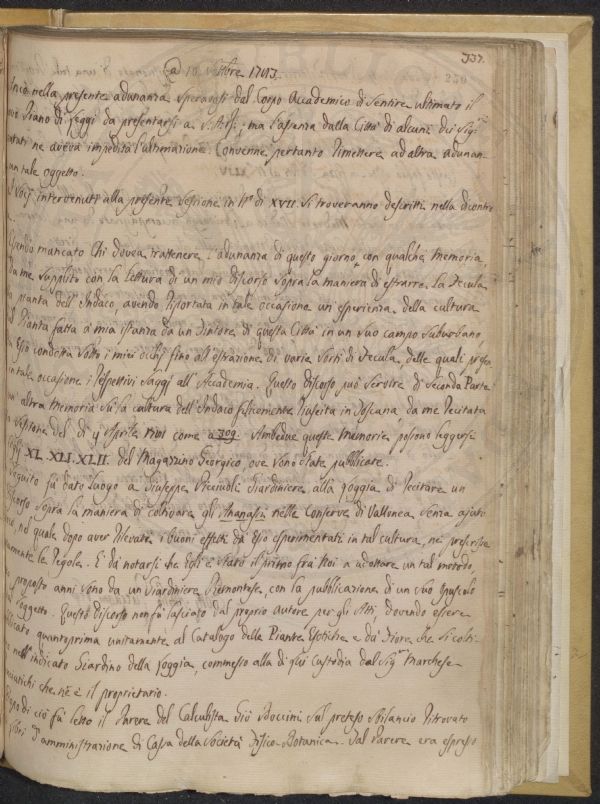 337.
230
a 10 1783.
nella presente adunanza speravasi dal Corpo Accademico di sentire ultimato il
Piano di Leggi da presentarsi a S.A.R.; ma l'assenza dalla Città di alcuni dei Sig.ri
ne aveva impedita l'ultimazione. Convenne pertanto rimettere ad altra adunan-
un tale oggetto.
intervenuti alla presente Sessione in N.º di XVII si troveranno descritti nella di contro
mancato chi dovea trattenere l'adunanza di questo giorno con qualche memoria
da me supplito con la lettura di un mio discorso sopra la maniera di estrarre la Fecula
pianta dell'Indaco, avendo riportata in tale occasione un'esperienza della cultura
Pianta fatta a mia istanza da un Tintore di questa Città in un suo campo suburbano,
condotta sotto i miei occhj fino all'estrazione di varie sorti di Fecula, delle quali
in tale occasione i respettivi saggj all'Accademia. Questo discorso può servire di seconda Parte
altra Memoria su la cultura dell'Indaco felicemente riuscita in Toscana da me recitata
Sessione del dì Aprile come a 309. Ambedue queste memorie possono leggersi
XL. XLI. XLII. del Magazzino Georgico, ove sono state pubblicate.
seguito fu dato luogo a Giuseppe Piccioli Giardiniere alla Loggia di recitare un
discorso sopra la maniera di coltivare gli Ananassi nelle Conserve di Vallonea senza ajuto
nel quale dopo aver rilevate i buoni effetti da esso esperimentati in tal cultura, ne prescrive
le Regole. È da notarsi che egli è stato il primo fra Noi a adottare un tal metodo,
proposto anni sono da un Giardiniere Piemontese con la pubblicazione di un suo Opuscolo
oggetto. Questo discorso non fu lasciato dal proprio autore per gli Atti dovendo essere
quantoprima unitamente al Catalogo delle Piante Esotiche e da Fiore che si colti-
nell'indicato Giardino della Loggia, commesso alla di lui custodia dal Sig.r Marchese
che n'è il proprietario.
Dopo di ciò fu letto il Parere del Calculista Gio. Boccini sul preteso sbilancio ritrovato
d'amministrazione di Cassa della Società Fisico-Botanica. Dal Parere era espresso